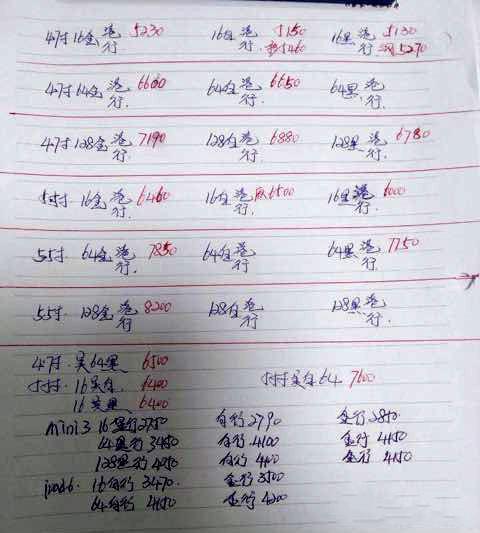 47寸 16金 港行 5230 16白 港行 5150 16黑 港行 5130 5270
47寸 64金 港行 6600 64白 港行 6650 64黑 港行.
47寸 128金 港行 7190 128白 港行 6880 128黑 港行 6780
16金 港行 6460 16白 港行 6500 16黑 港行 6000
55寸 64金 港行 7850 64白 港行 64黑 港行 7750
55寸 128金 港行 8200 128白 港行 128黑 港行
47寸 美64黑 6500
16美白 6400 美白64 7600
16美黑 6400
mini3 16黑行 2750 白行 2790 金行 2850
64黑行 3450 白行 4100 金行 4150
128黑行 4050 白行 金行 4150
ipad6 16白行 3470 金行 3500
64白行 4150 金行 4200